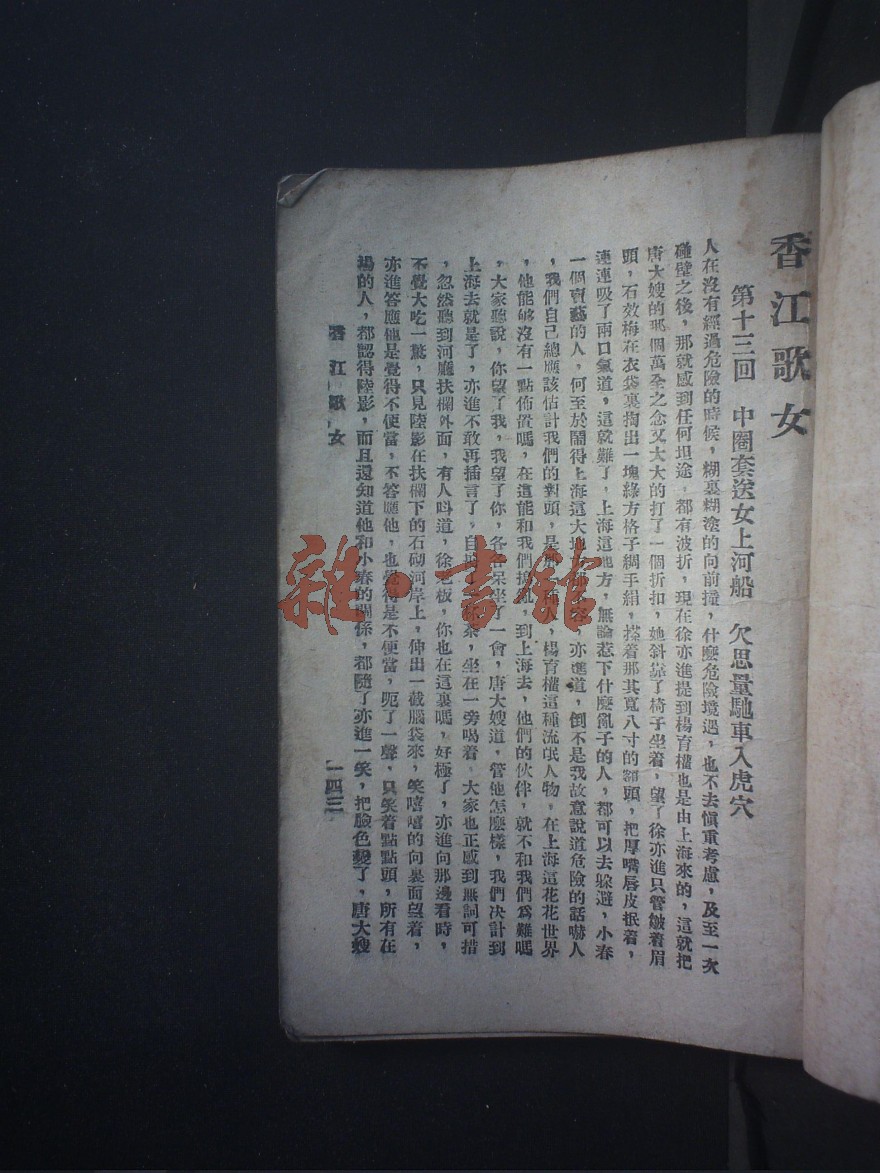 香江歌女
第十三回　中圈套送女上河船　欠思量馳車入虎穴
人在沒有經過危險的時候，糊裏糊塗的向前撞，什麼危險境遇，也不去慎重考慮，及至一次
碰壁之後，那就感到任何坦途，都有波折，現在徐亦進提到楊育權也是由上海來的，這就把
唐大嫂的那個萬全之念又大大的打了一個折扣，她斜靠了椅子坐着，望了徐亦進只管皺着眉
頭，石效梅在衣袋裏掏出一塊綠方格子綢手絹，搽着那其寬八寸的額頭，把厚嘴唇皮抿着，
連連吸了兩口氣道，這就難了，上海這地方，無論惹下什麼亂子的人，都可以去躲避，小春
一個賣藝的人，何至於鬧得上海這大地，亦進道，倒不是我故意說道危險的話嚇人
，我們自己總應該估計我們的對頭，是那人，楊育權這種流氓人物，在上海這花花世界
，他能够沒有一點佈置嗎，在這能和我們，到上海去，他們的伙伴，就不和我們爲難嗎
，大家聽說，你望了我，我望了你，各各呆坐了一會，唐大嫂道，管他怎麼樣，我們决計到
上海去就是了，亦進不敢再插言了，自茶，坐在一旁喝着，大家也正感到無詞可措
，忽然聽到河廳扶欄外面，有人叫道，徐老板，你也在這裏嗎，好極了，亦進向那邊看時，
不覺大吃一驚，只見陸影在扶欄下的石砌河岸上，伸出一截腦袋來，笑嘻嘻的向裏面望着，
亦進答應他是覺得不便當，不答應他，也覺得是不便當，呃了一聲，只笑着點點頭，所有在
塲的人，都認得陸影，而且還知道他和小春的關係，都隨了亦進一笑，把臉色變了，唐大嫂
香江歌女
一四三
雜·書館